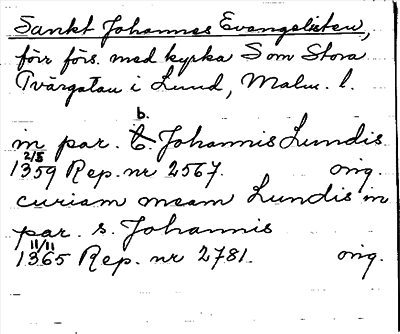 Sankt Johannes Evangelisten,
förr förs. med kyrka S om Stora
Tvärgatan i Lund, Malm. l.
in par. b. Johannis Lundis
2/5
1359 Rep. nr 2567. orig.
curiam meam Lundis in
par. s. Johannis
11/11
1365 Rep. nr 2781. orig.